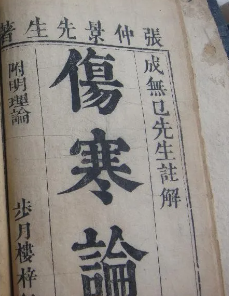 張仲景先生著
成無己先生註解
傷寒論
附明理論
步月樓梓